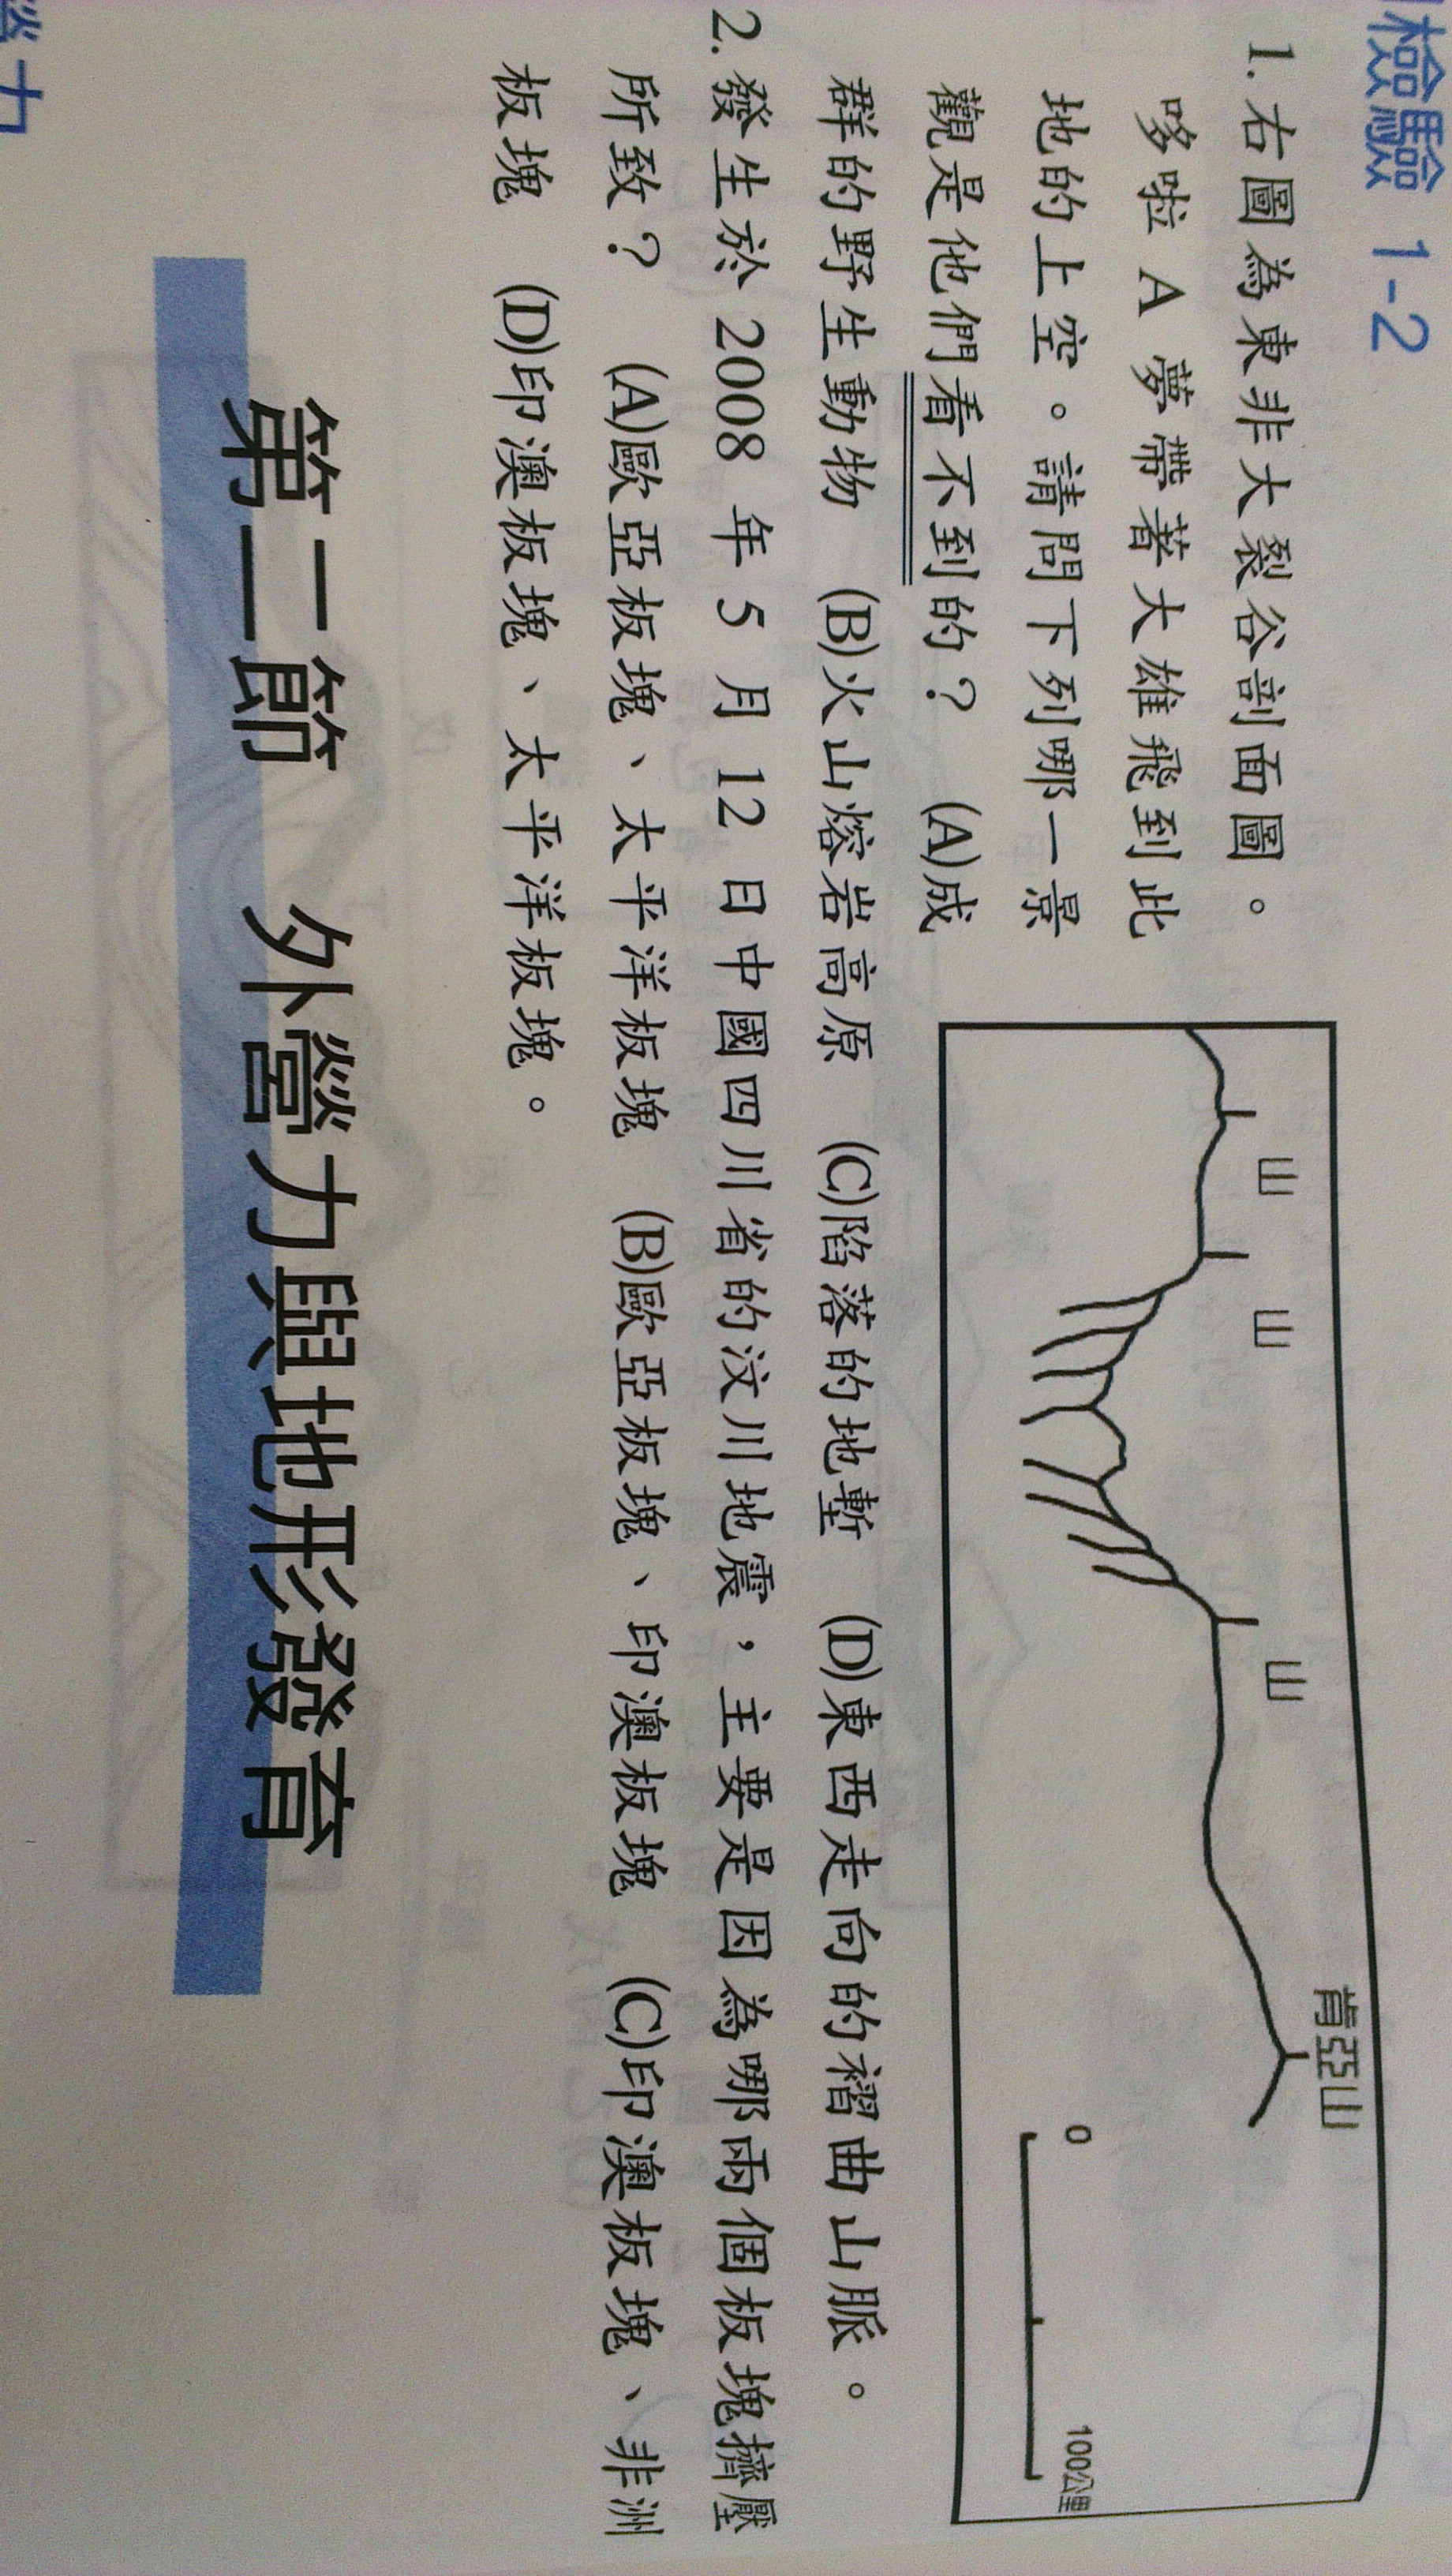 檢驗 1-2
1. 右圖為東非大裂谷剖面圖。
哆啦 A 夢帶著大雄飛到此
地的上空。請問下列哪一景
觀是他們看不到的？ (A)成
群的野生動物 (B)火山熔岩高原 (C)陷落的地塹 (D)東西走向的褶曲山脈。
山
山
山
肯亞山
0
100公里
2. 發生於 2008 年 5 月 12 日中國四川省的汶川地震，主要是因為哪兩個板塊擠壓
所致？ (A)歐亞板塊、太平洋板塊 (B)歐亞板塊、印澳板塊 (C)印澳板塊、非洲
板塊 (D)印澳板塊、太平洋板塊。
第二節 外營力與地形發育